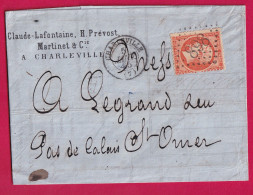 Claude-Lafontaine, H. Prévost,
Martinet & Cie
A CHARLEVILLE
CHARLEVILLE
A Legrand
Pas de Calais St Omer